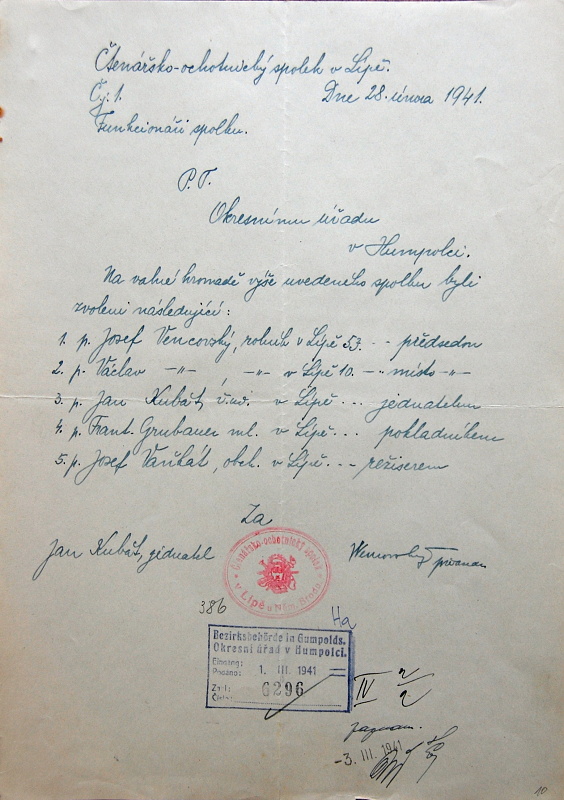 Čtenářsko-ochotnický spolek v Lípě.
Čj: 1. Dne 28. února 1941.
Funkcionáři spolku.
P. T.
Okresnímu úřadu
v Humpolci.
Na valné hromadě výše uvedeného spolku byli
zvoleni následující:
1. p. Josef Vencovský, rolník v Lípě 53. - - předsedou
2. p. Václav -"- , -"- v Lípě 10. - - místo -"-
3. p. Jan Kubát, v Lípě ... jednatelem
4. p. Frant. Grubauer ml. v Lípě ... pokladníkem
5. p. Josef Vaňkát, obch. v Lípě ... režiserem
Za
Jan Kubát, jednatel
Čtenářsko-ochotnický spolek
v Lípě u Něm. Brodu
386
Ha
Bezirksbehörde in Gumpolds.
Okresní úřad v Humpolci.
Eingang:
Podáno: 1. III. 1941
Zahl:
Číslo: 6296
IV 2/2
-3. III. 1941
10